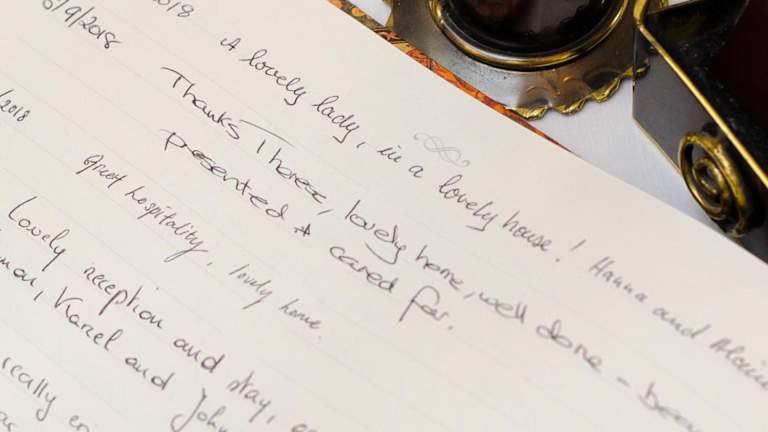 2018 A lovely lady, in a lovely house! Hanna and
/9/2018 Thanks Therese, lovely home, well done -
presented & cared for.
/2018 Great hospitality, lovely home.
Lovely reception and stay,
Karel and John
really